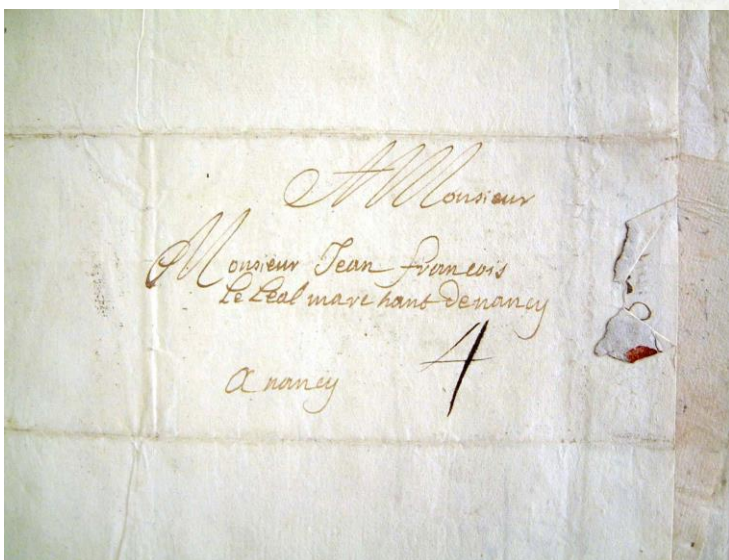 A Monsieur
Monsieur Jean francois
Le Leal marchant denancy
4
A nancy